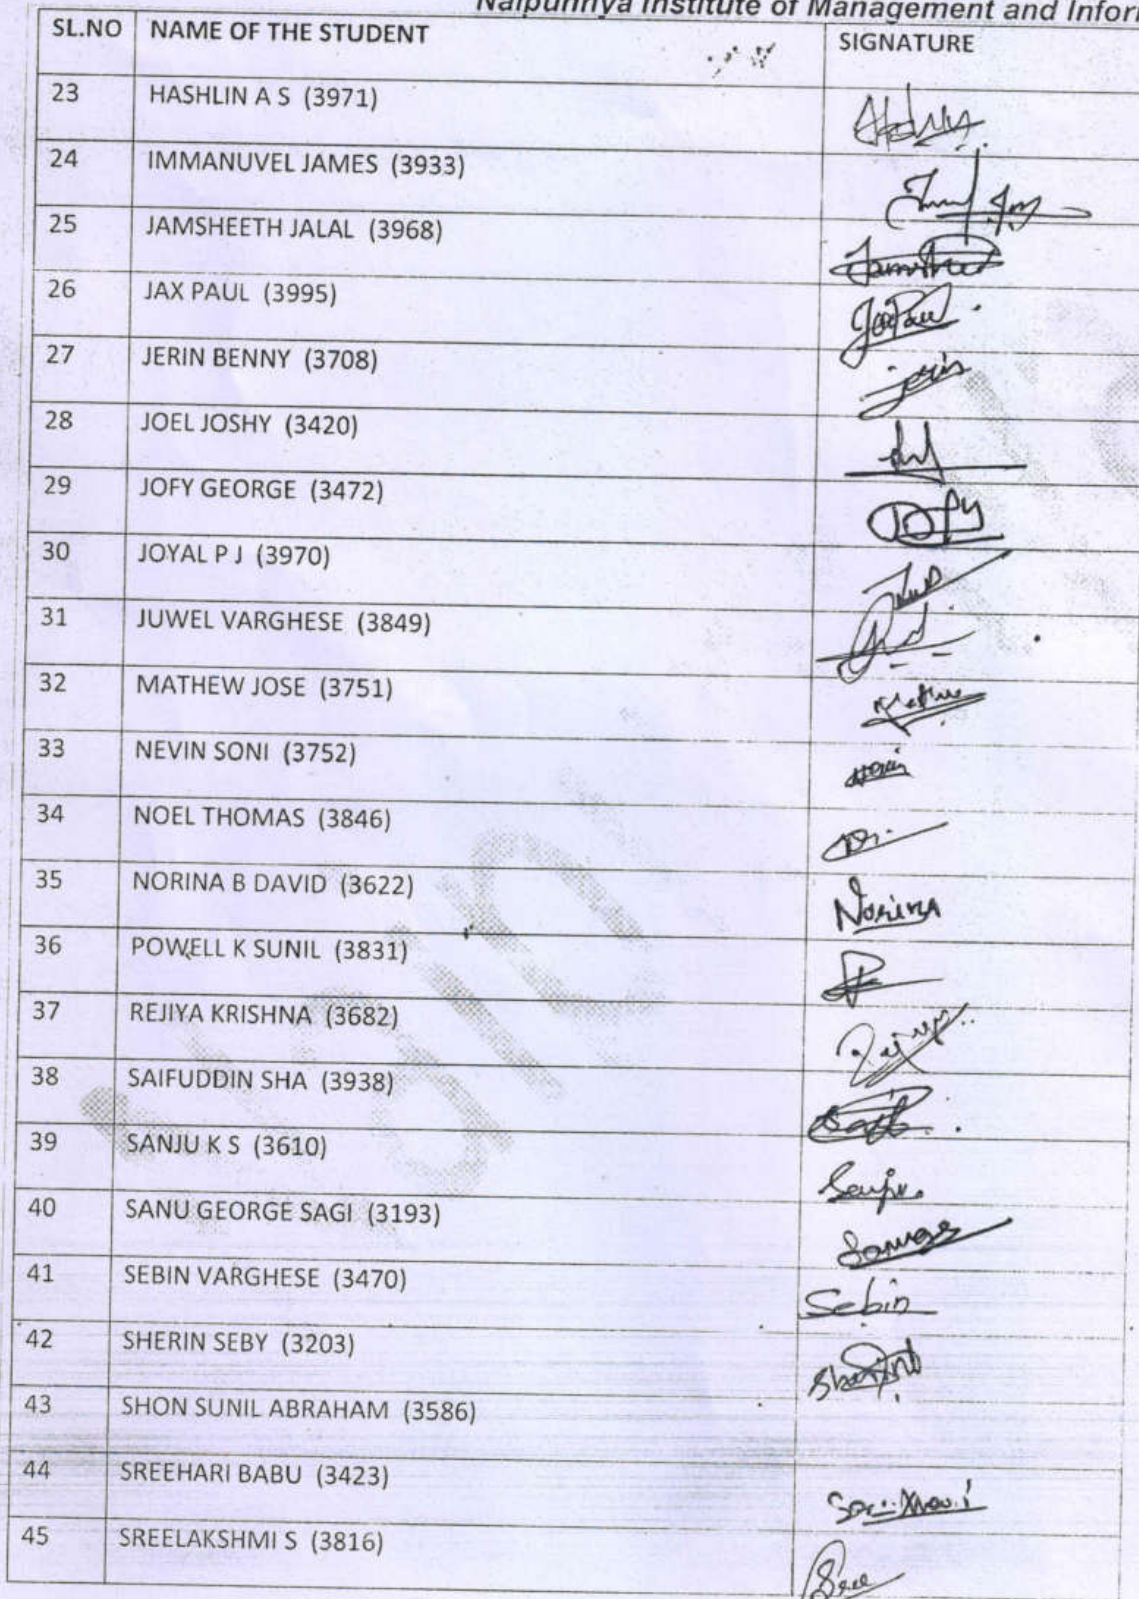 Naipunnya Institute of Management and Infor
SL.NO NAME OF THE STUDENT SIGNATURE
23 HASHLIN A S (3971)
24 IMMANUVEL JAMES (3933)
25 JAMSHEETH JALAL (3968)
26 JAX PAUL (3995)
27 JERIN BENNY (3708)
28 JOEL JOSHY (3420)
29 JOFY GEORGE (3472) JOFY
30 JOYAL P J (3970)
31 JUWEL VARGHESE (3849)
32 MATHEW JOSE (3751)
33 NEVIN SONI (3752)
34 NOEL THOMAS (3846)
35 NORINA B DAVID (3622) Norina
36 POWELL K SUNIL (3831)
37 REJIYA KRISHNA (3682)
38 SAIFUDDIN SHA (3938)
39 SANJU K S (3610) Sanju
40 SANU GEORGE SAGI (3193)
41 SEBIN VARGHESE (3470) Sebin
42 SHERIN SEBY (3203)
43 SHON SUNIL ABRAHAM (3586)
44 SREEHARI BABU (3423)
45 SREELAKSHMI S (3816) Sree